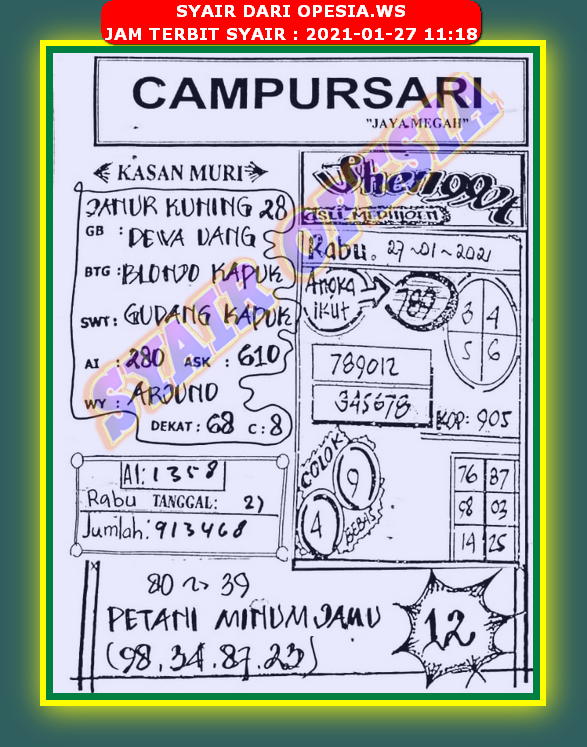 SYAIR DARI OPESIA.WS
JAM TERBIT SYAIR : 2021-01-27 11:18
CAMPURSARI
"JAYA MEGAH"
KASAN MURI
JANUR KUNING 28
GB : DEWA UANG
BTG : BLONDO KAPUK
SWT : GUDANG KAPUK
AI : 280 ASK : 610
WY : ARJUNO
DEKAT : 68 C : 8
A1: 1358
Rabu TANGGAL: 2)
Jumlah: 913468
Shenggot
ASLI
Rabu. 27-01-2021
Angka
ikut
789
3 4
5 6
789012
345678
KOP: 905
COLOK
9
4
BEBAS
76 87
98 03
14 25
80 ~> 39
PETANI MINUM JAMU
(98.34.87.23)
12
SYAIR OPESIA